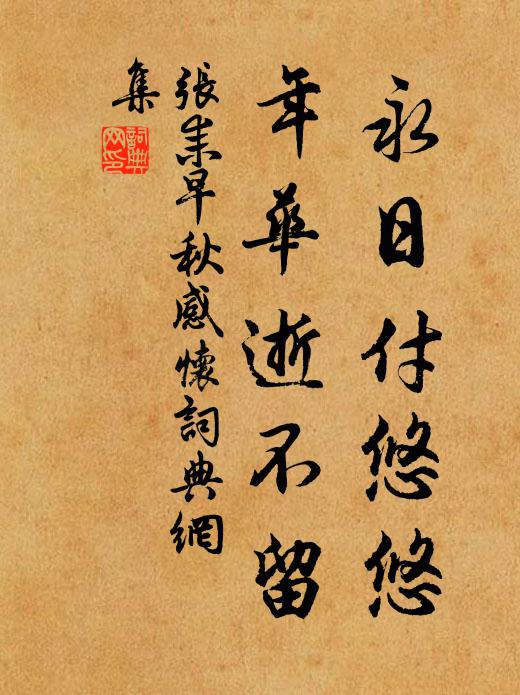 永日付悠悠
年華逝不留
張耒早秋感懷詞典網
集
詞典网印